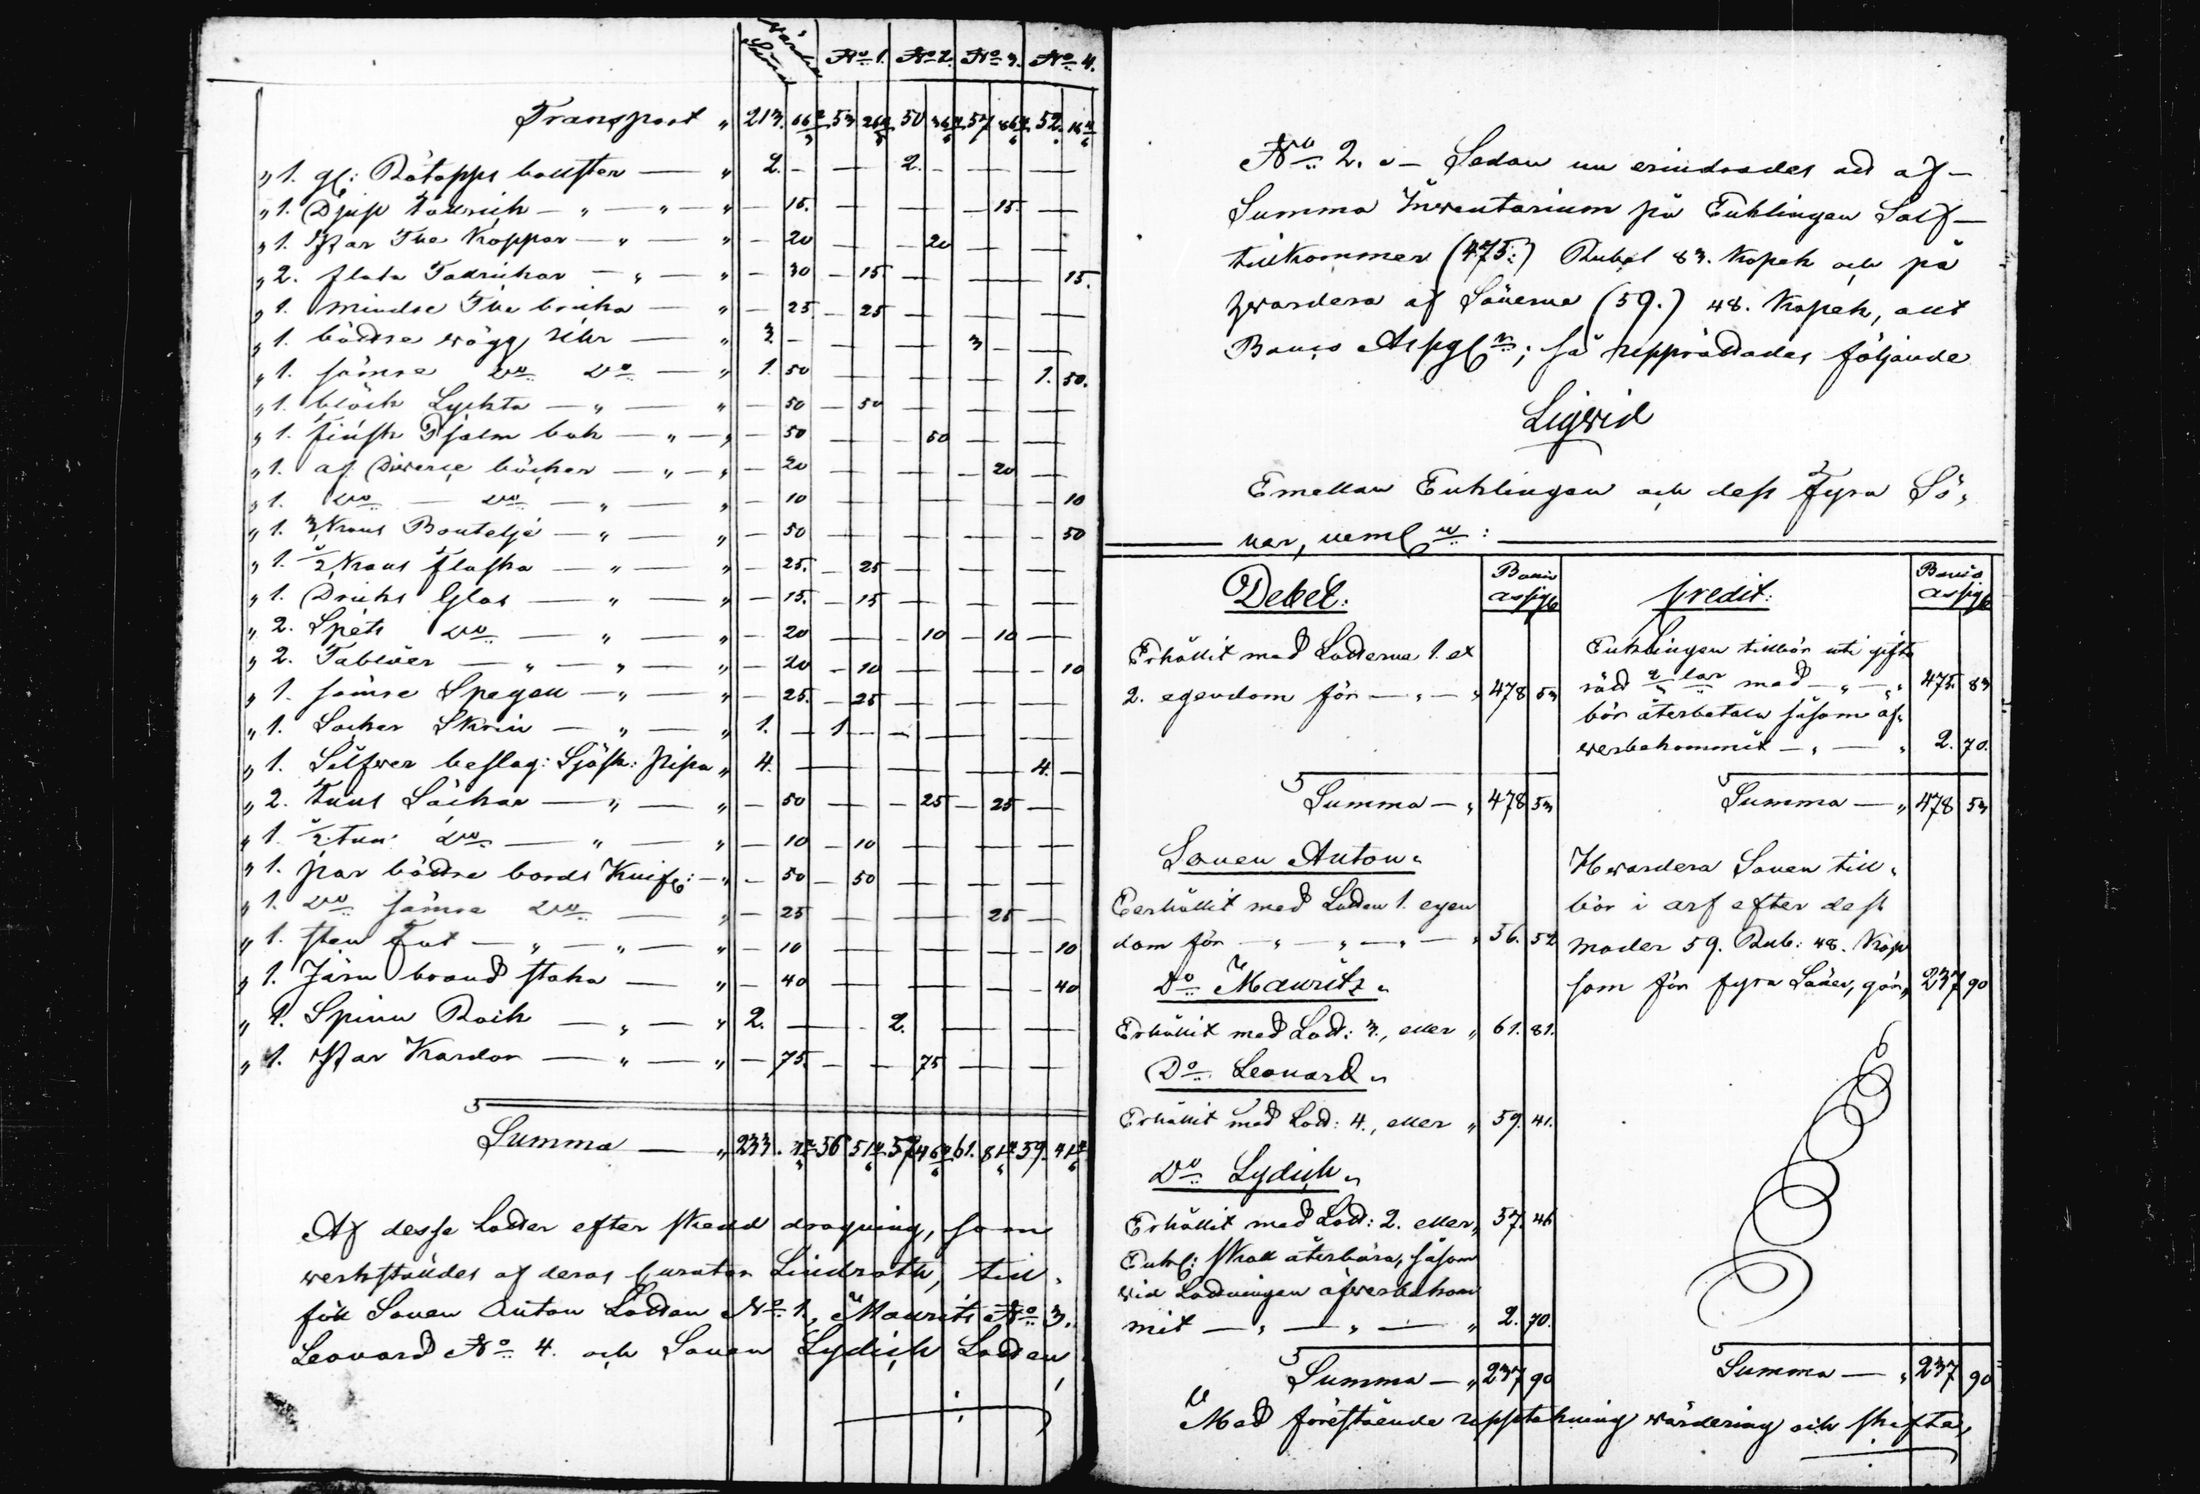 Värde Summa | No 1. | No 2. | No 3. | No 4.
Transport " 213. 66 2/3 53 26 50 36 57 86 52. 16
" 1. gl: Rötopps bollster — " 2. — — 2. — — —
" 1. Djup Tallrick — " — " — 15. — — 15. —
" 1. Par The Koppar — " — " — 20 — 20 — —
" 2. flata Tallrickar — " — " — 30 — 15 — — 15.
" 1. mindre The bricka — " — 25 — 25 — — —
" 1. bättre vägg Uhr — " 3 — — — 3 — —
" 1. sämre Do Do — " 1. 50 — — — 1. 50.
" 1. bläck Lyckta — " — " — 50 — 50 — — —
" 1. finsk Psalm bok — " — " — 50 — 50 — —
" 1. af Diverse böcker — " — " — 20 — — 20 —
" 1. Do — Do — " — " — 10 — — — 10
" 1. 3 Kans Boutelje — " — " — 50 — — — 50
" 1. 1/2 Kans flaska — " — " — 25. — 25 — — —
" 1. Dricks Glas — " — " — 15. — 15 — — —
" 2. Spets Do — " — " — 20 — — 10 — 10 —
" 2. Tablåer — " — " — " — 20 — 10 — — — 10
" 1. sämre Spegell — " — " — 25. — 25 — — —
" 1. Socker Skrin — " — " 1. — 1 — — — —
" 1. Silfwer beslag: Sjösk: Pipa " 4. — — — — 4. —
" 2. Tuns Säckar — " — " — 50 — — 25 — 25 —
" 1. 1/2 Tun: Do — " — " — 10 — 10 — — —
" 1. par bättre bords Knif: — " — 50 — 50 — — —
" 1. Do sämre Do — " — 25 — — — 25 —
" 1. sten Fat — " — " — " — 10 — — — 10
" 1. Järn brand staka — " — 40 — — — 40
" 1. Spinn Rock — " — " 2. — — 2. — — —
" 1. Par Kardor — " — " — 75. — — 75 — —
Summa — " 233. 56 51 57 46 61. 81 59. 41
Af desse Lotter efter skedd dragning, som
werkstäldes af deras Curator Lindroth, till-
föll Sonen Anton Lotten No 1, Maurits No 3.
Leonard No 4. och Sonen Lydich Lotten
No 2. — Sedan nu erindrades att af
Summa Inventarium på Enklingen Self
tillkommer (475:) Rubel 83. Kopek och på
hwardera af Sönerne (59.) 48. Kopek, allt
Banco Assigl:; så upprättades följande
Liqvid
Emellan Enklingen och dess fyra Sö-
ner, neml:
Debet: | Banco assigl | Credit: | Banco assigl
Erhållit med Lotterne 1. et
2. egendom för — " — " 478 53
Enklingen tillkör uti gifto
rätt 2 lar med — " — " 475. 83
bör återbetala såsom öf-
werbekommit — " — " 2. 70.
Summa — " 478 53
Summa — " 478 53
Sonen Anton "
Eerhållit med Lotten 1. egen
dom för — " — " — " — " 56. 52
Do Mauritz "
Erhållit med Lott: 3., eller " 61. 81.
Do Leonard "
Erhållit med Lott: 4., eller " 59. 41.
Do Lydich "
Erhållit med Lott: 2. eller " 57. 46
Enkl: skall återbära, såsom
vid Lottningen öfwerbekom
mit — " — " — " 2. 70.
Summa — " 237 90
Hwardera Sonen till-
kör i arf efter dess
moder 59. Rub: 48. Kop
som för fyra Söner, gör " 237 90
Summa — " 237 90
Med förestående uppteckning wärdering och skifte,